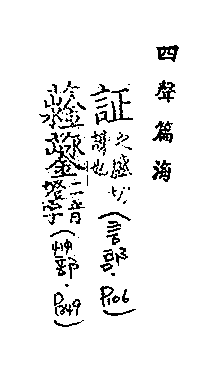 四聲篇海
証之盛切諫也(言部.P106)
二音 字(艸部.P249)